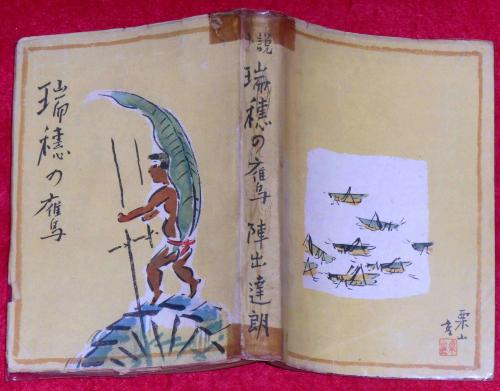 瑞穂の鷹
小説
瑞穂の鷹
陣出達朗
栗山